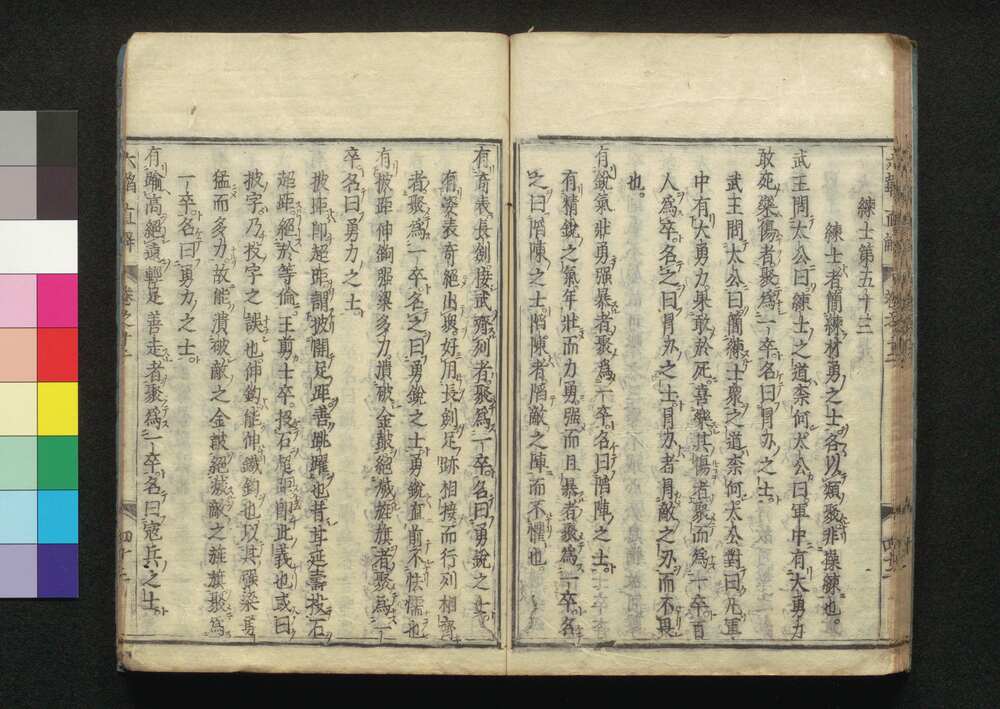 練士第五十三
練士者簡練材勇之士各以類聚非操練也
武王問太公曰練士之道奈何太公曰軍中有大勇力
敢死樂傷者聚為一卒名曰冐刃之士
武王問太公曰簡練士衆之道奈何太公對曰凡軍
中有大勇力果敢於死喜樂其傷者聚而為一卒百
人為卒名之曰冐刃之士冐刃者冐敵之刃而不畏
也
有銳氣壯勇强暴者聚為一卒名曰陷陣之士
有精銳之氣年壯而力勇强而且暴者聚為一卒名
之曰陷陳之士陷陳者陷敵之陣而不懼也
有奇表長劍接武齊列者聚為一卒名曰勇銳之士
有姿表奇絕出衆好用長劍足跡相接而行列相齊
者聚為一卒名之曰勇銳之士勇銳直前不怯懦也
有披距伸鉤强梁多力潰破金鼓絕滅旌旗者聚為一
卒名曰勇力之士
披距即超距謂披開足距善跳躍也昔甘延壽投石
超距絕於等倫王翦士卒投石超距即此義也或曰
披字乃投字之誤也伸鉤能伸鐵鉤也以其强梁勇
猛而多力故能潰破敵之金鼓絕滅敵之旌旗聚為
一卒名曰勇力之士
有踰高絕遠輕足善走者聚為一卒名曰寇兵之士
六韜直解
卷之廿二
四十二